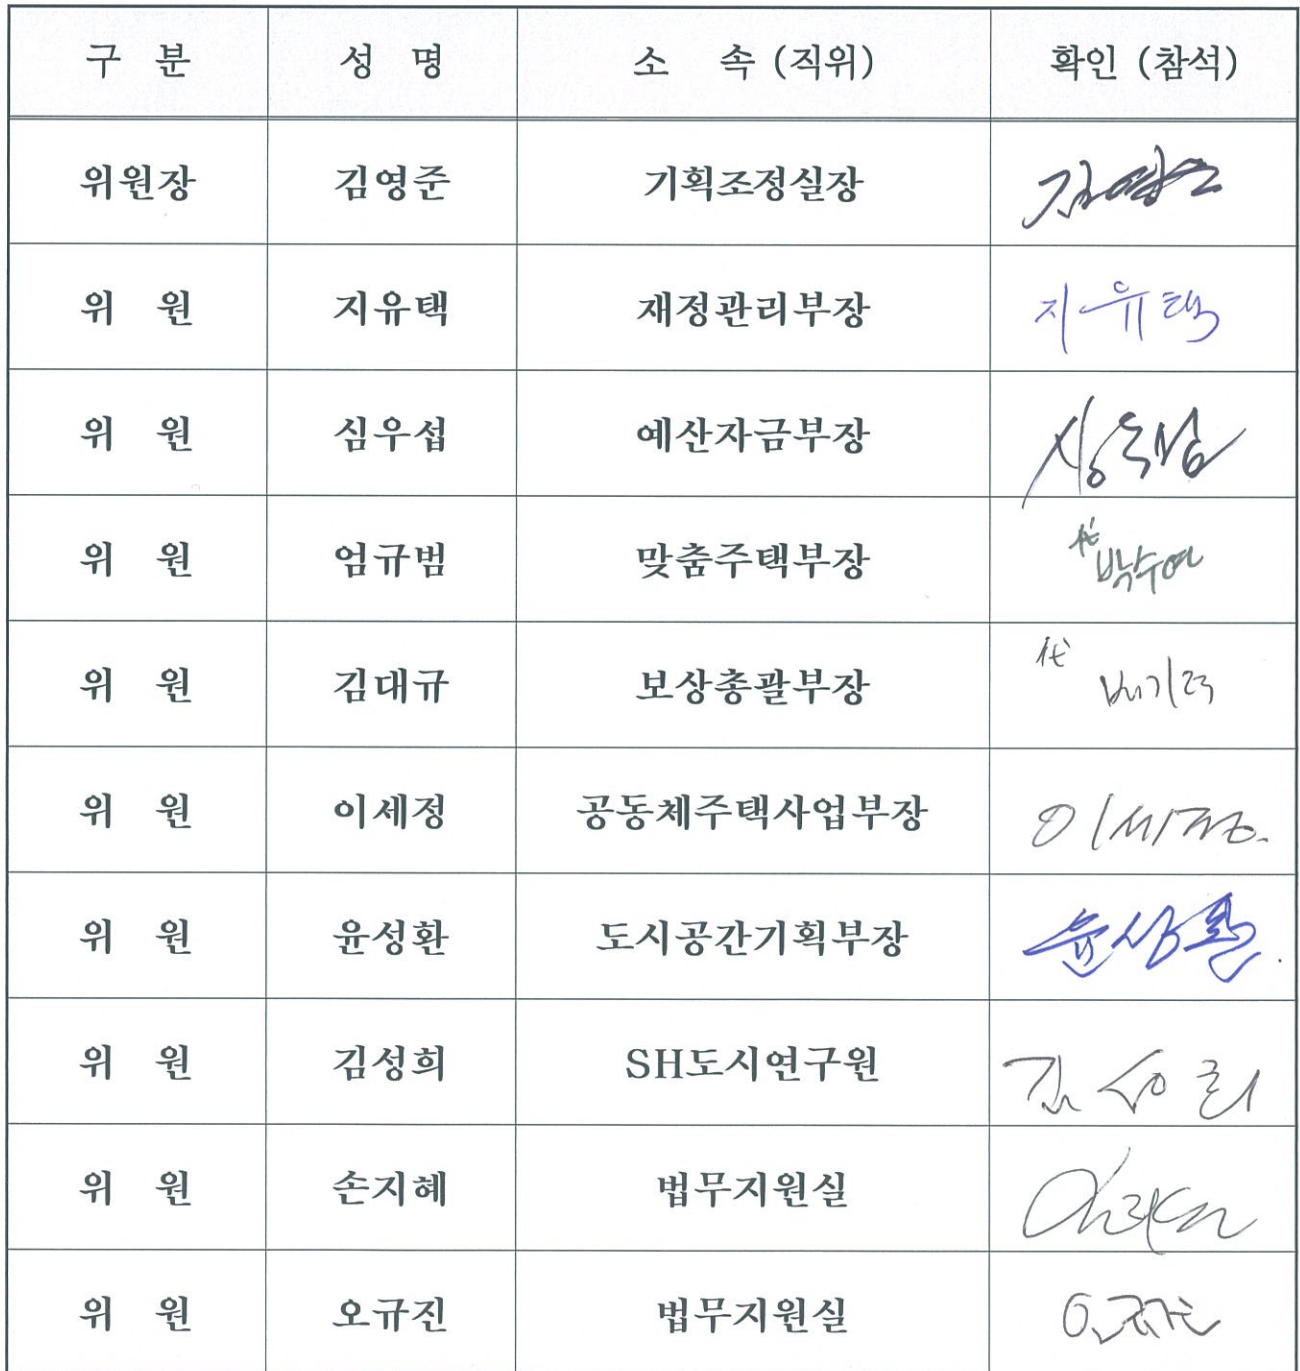 구 분 성 명 소 속 (직위) 확인 (참석)
위원장 김영준 기획조정실장 김영준
위 원 지유택 재정관리부장 지유택
위 원 심우섭 예산자금부장 심우섭
위 원 엄규범 맞춤주택부장 代 박수연
위 원 김대규 보상총괄부장 代
위 원 이세정 공동체주택사업부장 이세정
위 원 윤성환 도시공간기획부장 윤성환
위 원 김성희 SH도시연구원 김성희
위 원 손지혜 법무지원실
위 원 오규진 법무지원실 오규진